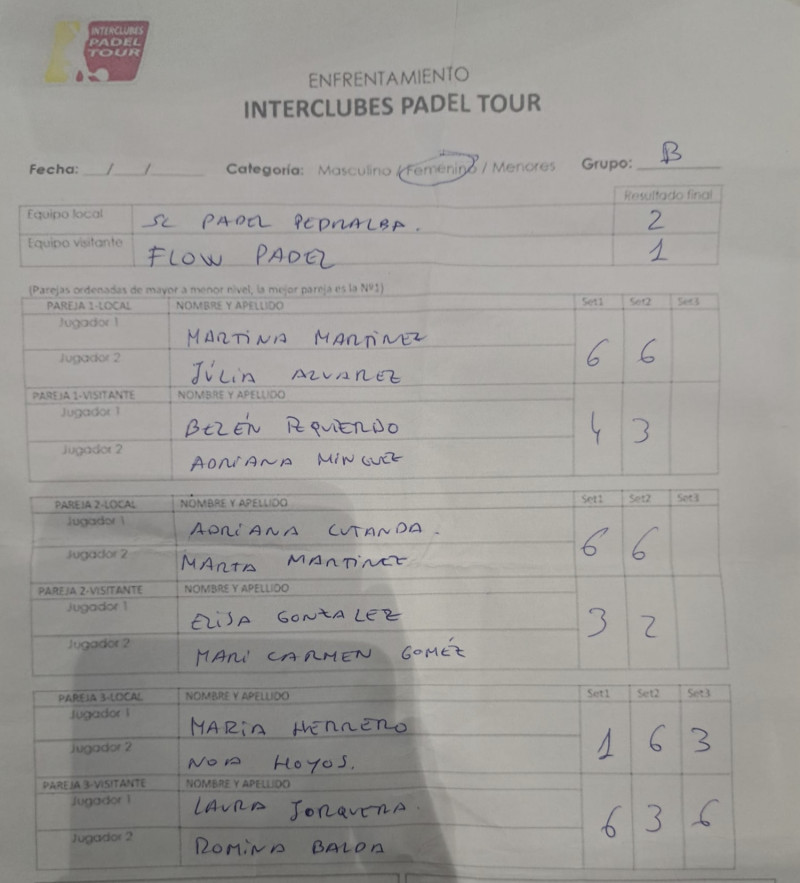 INTERCLUBES
PADEL
TOUR
ENFRENTAMIENTO
INTERCLUBES PADEL TOUR
Fecha: __/__/____ Categoría: Masculino / Femenino / Menores Grupo: B
Resultado final
Equipo local SC PADEL PEDRALBA. 2
Equipo visitante FLOW PADEL 1
(Parejas ordenadas de mayor a menor nivel, la mejor pareja es la Nº1)
PAREJA 1-LOCAL NOMBRE Y APELLIDO Set1 Set2 Set3
Jugador 1 MARTINA MARTINEZ
Jugador 2 JÚLIA ALVAREZ
6 6
PAREJA 1-VISITANTE NOMBRE Y APELLIDO
Jugador 1 BELÉN IZQUIERDO
Jugador 2 ADRIANA MINGUEZ
4 3
PAREJA 2-LOCAL NOMBRE Y APELLIDO Set1 Set2 Set3
Jugador 1 ADRIANA CUTANDA.
Jugador 2 MARTA MARTINEZ
6 6
PAREJA 2-VISITANTE NOMBRE Y APELLIDO
Jugador 1 ELISA GONZALEZ
Jugador 2 MARI CARMEN GOMÉZ
3 2
PAREJA 3-LOCAL NOMBRE Y APELLIDO Set1 Set2 Set3
Jugador 1 MARIA HERRERO
Jugador 2 NOA HOYOS.
1 6 3
PAREJA 3-VISITANTE NOMBRE Y APELLIDO
Jugador 1 LAURA JORQUERA.
Jugador 2 ROMINA BALDA
6 3 6